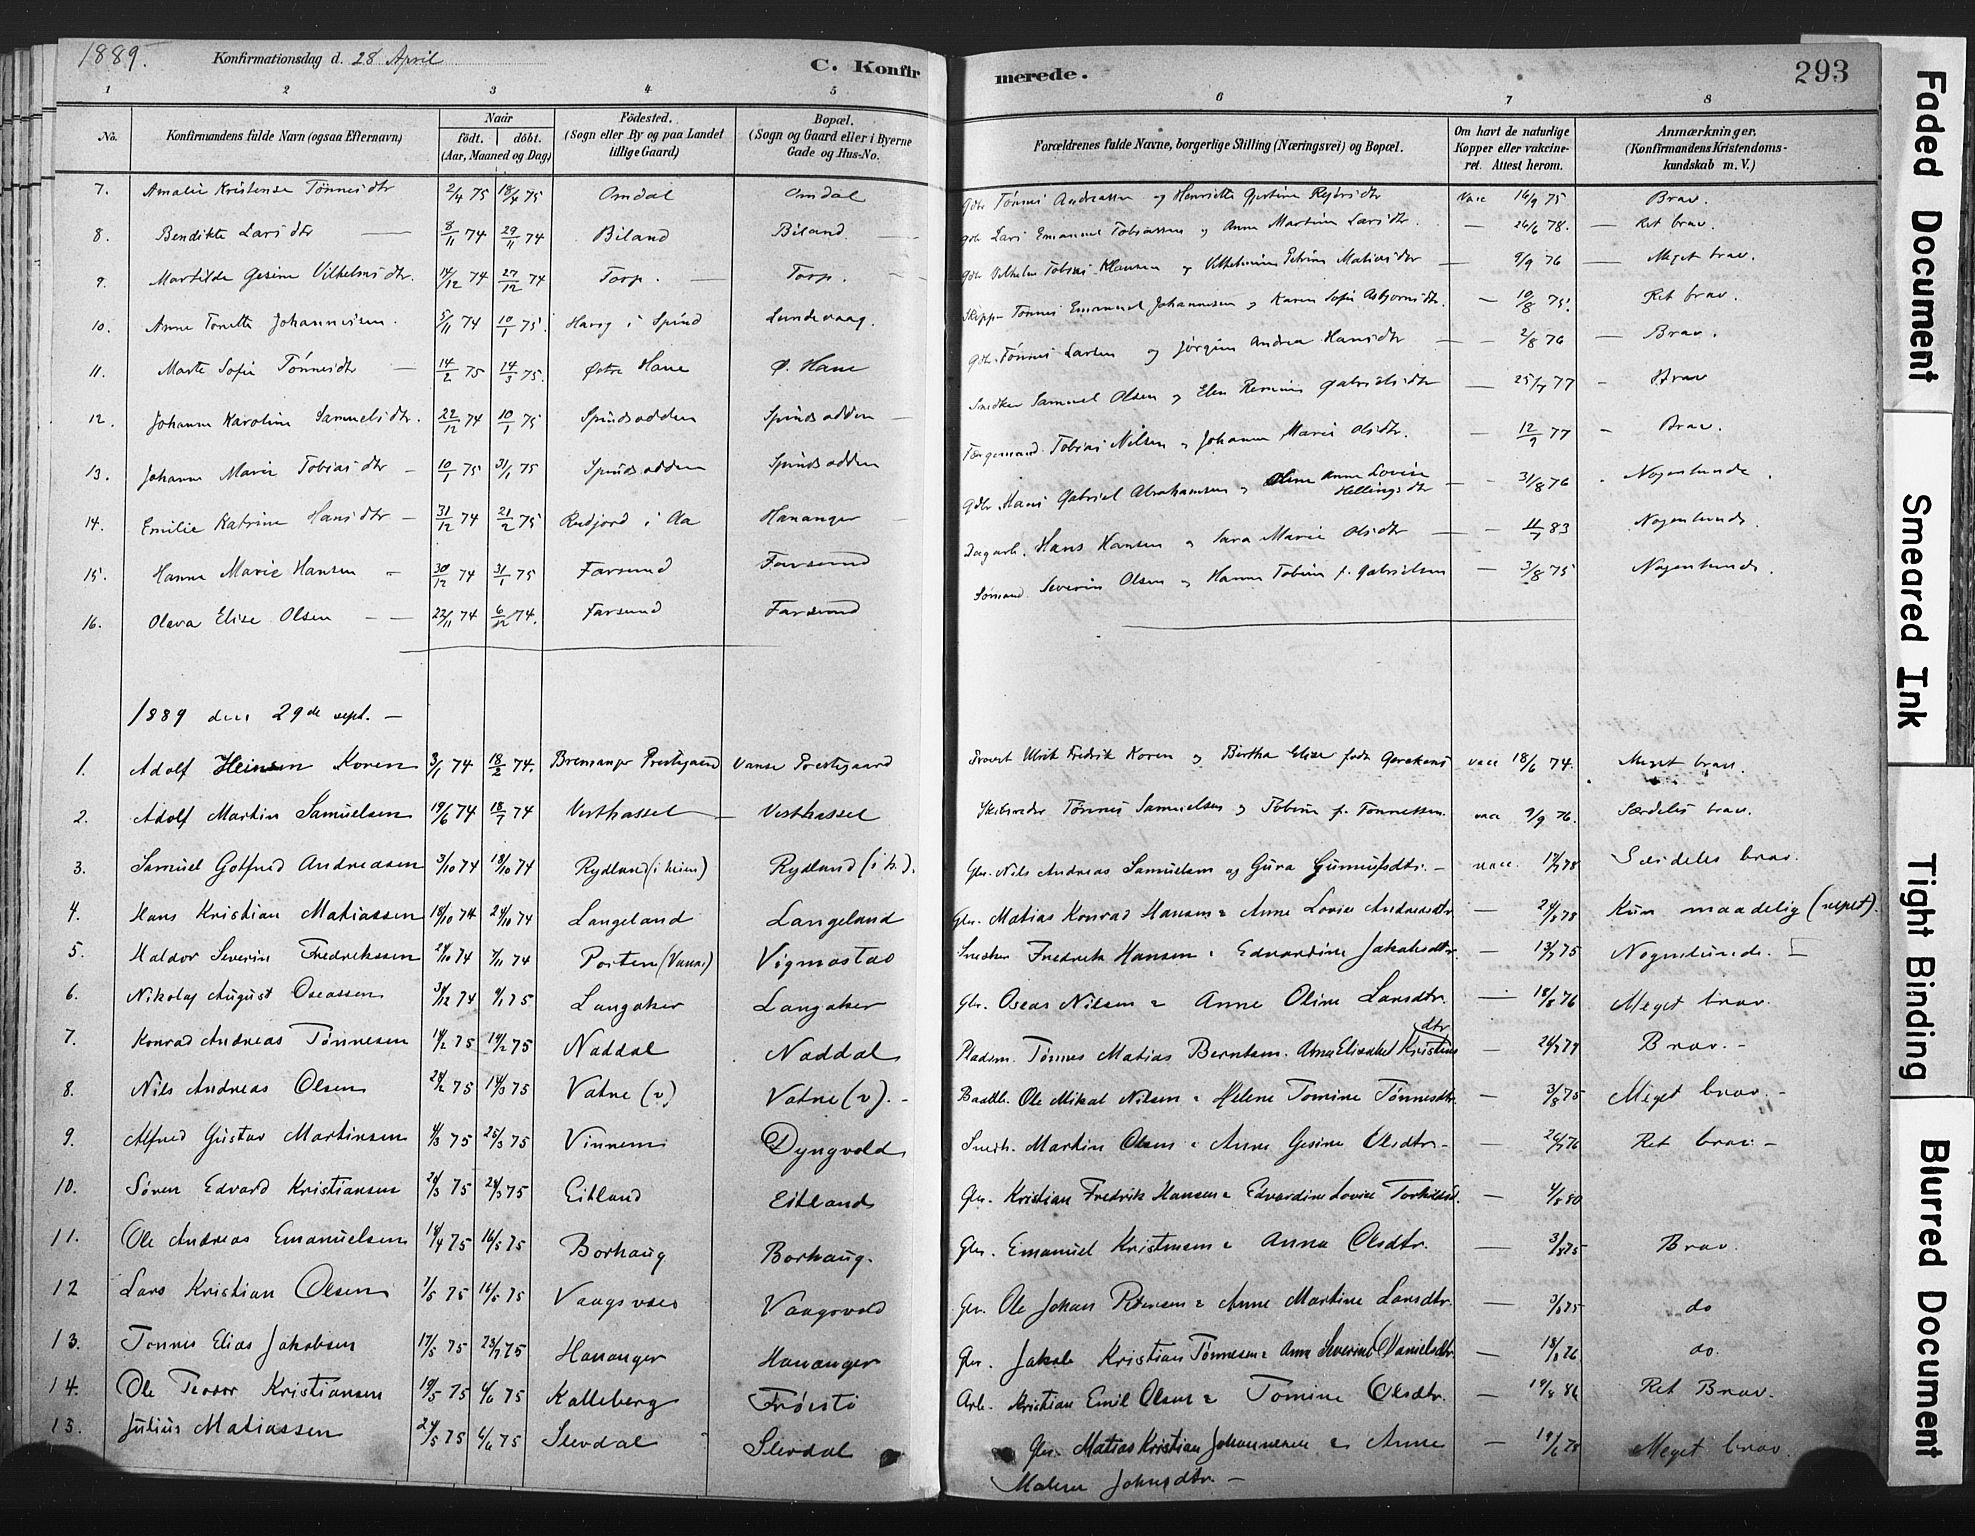 1889. Konfirmationsdag d. 28 April C. Konfirmerede. 293
1 2 3 4 5 6 7 8
No. Konfirmandens fulde Navn (ogsaa Efternavn) Naar födt. döbt. (Aar, Maaned og Dag) Födested. (Sogn eller By og paa Landet tillige Gaard) Bopæl. (Sogn og Gaard eller i Byerne Gade og Hus-No. Forældrenes fulde Navne, borgerlige Stilling (Næringsvei) og Bopæl. Om havt de naturlige Kopper eller vakcineret. Attest herom. Anmærkninger. (Konfirmandens Kristendomskundskab m. V.)
7. Amalie Kristense Tönnesdtr 2/4 75 18/4 75 Omdal Omdal Gdbr Tönnes Andreassen og Henriette Gjertine Rejersdtr Vacc 16/9 75 Brav.
8. Bendikte Larsdtr — 8/11 74 29/11 74 Biland Biland. — Gdb Lars Emanuel Tobiassen og Anne Martine Larsdtr. — 26/6 78. — Ret brav.
9. Martilde Gesine Vilhelmsdtr. 14/12 74 27/12 74 Torp. — Torp. — Gdb Vilhelm Tobias Klausen og Vilhelmine Petrine Matiasdtr — 9/9 76 — Meget brav.
10. Anne Tonette Johannesen. 5/11 74 10/1 75. Havog i Spind Lundevaag. Skipp— Tönnes Emanuel Johannesen og Karen Sofie Asbjornsdtr. — 10/8 75. Ret brav.
11. Marte Sofie Tönnesdtr — 14/2 75 14/3 75. Östre Hane Ö. Hane Gdb. Tönnes Larsen og Jörgine Andrea Hansdtr — 2/8 76 — Brav.
12. Johanne Karoline Samuelsdtr. 22/12 74 10/1 75 Spindsodden Spindsodden — Snedker Samuel Olsen og Elen Regine Gabrielsdtr — 25/7 77 - Brav
13. Johanne Marie Tobiasdtr — 10/1 75 31/1 75 Spindsodden Spindsodden Færgemand Tobias Nilsen og Johanne Marie Olsdtr. — 12/9 77 - Brav.
14. Emilie Katrine Hansdtr — 31/12 74 21/2 75 Rudjord i Aa Hananger — Gdbr. Hans Gabriel Abrahamsen og Anne Lovise Hellingsdtr — 31/8 76 Nogenlunde.
15. Hanne Marie Hansen — 30/12 74 31/1 75 Farsund Farsund Dagarb. Hans Hansen og Sara Marie Olsdtr — 11/7 83 Nogenlunde.
16. Olava Elise Olsen — — 22/11 74 6/12 74. Farsund Farsund Sömand Severin Olsen og Hanne Tobine f. Gabrielsen — 3/8 75 Nogenlunde.
1889 den 29de sept. —
1. Adolf Koren 3/1 74 18/2 74. Bremanger Prestegaard Vanse Prestegaard Provst Ulrik Fredrik Koren og Birtha Elise födt Gerckens vacc 18/6 74. Meget brav.
2. Adolf Martin Samuelsen 19/6 74 18/7 74 Vesthassel — Vesthassel Skibsreder Tönnes Samuelsen og Tobine f. Tonnessen. vacc 9/9 76. Særdeles brav.
3. Samuel Gotfred Andreasen 3/10 74 18/10 74 Rydland (i heien) Rydland (i h.). Gbr. Nils Andreas Samuelsen og Gura Gunnufsdtr. — vacc. 17/7 78 Særdeles brav.
4. Hans Kristian Matiassen 18/10 74 24/10 74 Langeland Langeland Gbr. Matias Konrad Hansen & Anne Lovise Andreasdtr — 24/7 78 Kun maadelig (repet).
5. Haldor Severin Fredriksen 24/10 74 7/11 74 Porten (Vanse) Vigmostad Snedker Fredrik Hansen & Edvardine Jakobsdtr. — 13/7 75 Nogenlunde.
6. Nikolaj August Oseassen 31/12 74 9/1 75 Langaker Langaker Gbr. Oseas Nilsen & Anne Oline Larsdtr. — 18/8 76 Meget brav.
7. Konrad Andreas Tönnesen 14/2 75 14/2 75 Naddal Naddal Pladsm. Tönnes Matias Berntsen. Anne Elisabet Kristensdtr — 24/7 79 Brav. -
8. Nils Andreas Olsen 24/2 75 14/3 75 Vatne (v) Vatne (v). - Baadb. Ole Mikal Nilsen & Helene Tomine Tönnesdtr — 3/8 75 Meget brav. -
9. Alfred Gustav Martinsen 4/3 75 25/3 75 Vinnem Dyngvold Snedk. Martin Olsen & Anne Gesine Olsdtr- — 26/7 76 Ret brav. -
10. Sören Edvard Kristiansen 24/3 75 24/3 75 Eitland Eitland Gbr. Kristian Fredrik Hansen & Edvardine Lovise Torkildsd. — 4/8 80
11. Ole Andreas Emanuelsen 18/4 75 16/5 75 Borhaug Borhaug. Gbr. Emanuel Kristensen & Anna Olsdtr. — 3/8 75 Brav.
12 Lars Kristian Olsen 1/5 75 16/5 75 Vaagsvold Gbr. Ole Johan Petersen & Anne Martine Larsdtr. — 3/8 75 do
13. Tonnes Elias Jakobsen 17/5 75 23/7 75 Hananger Hananger Gbr. Jakob Kristian Tönnesen & Anne Severine Danielsdtr. — 18/8 76 do.
14. Ole Teodor Kristiansen 19/5 75 6/6 75 Kalleberg Fröistö Arb. Kristian Emil Olsen & Tomine Olsdtr. — 19/8 86 Ret Brav.
15. Julius Matiassen 24/5 75 6/6 75 Slevdal Slevdal Gbr. Matias Kristian Johannesen & Anne — 19/6 78 Meget brav.
Malene Johnsdtr. —
Faded Document
Smeared Ink
Tight Binding
Blurred Document